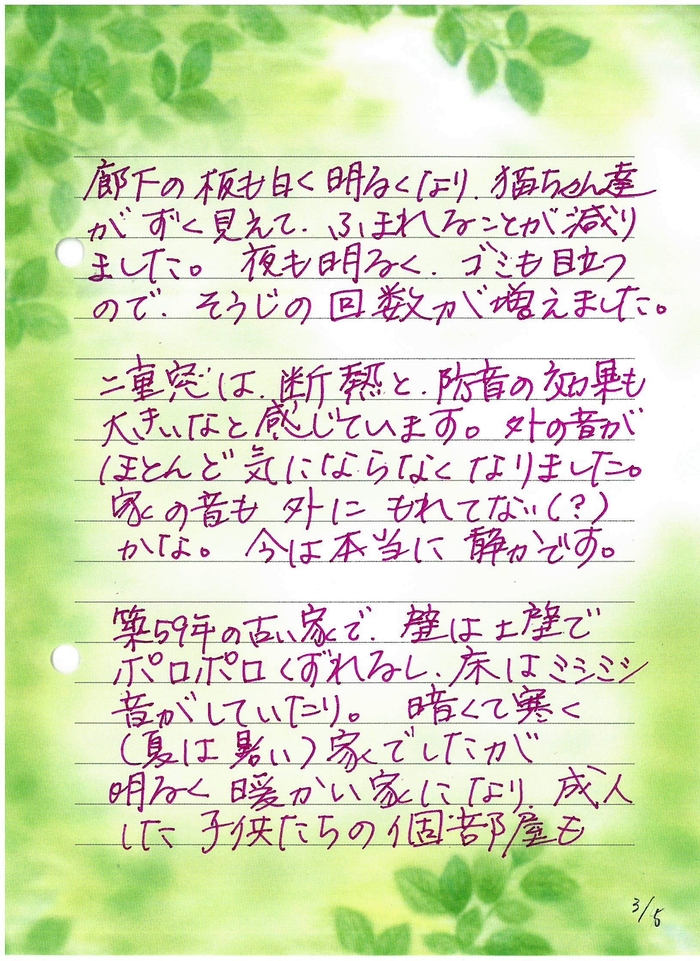 廊下の板も白く明るくなり、猫ちゃん達
がすぐ見えて、ふまれることが減り
ました。夜も明るく、ゴミも目立つ
ので、そうじの回数が増えました。
二重窓は、断熱と、防音の効果も
大きいなと感じています。外の音が
ほとんど気にならなくなりました。
家の音も外にもれてない(?)
かな。今は本当に静かです。
築59年の古い家で、壁は土壁で
ポロポロくずれるし、床はミシミシ
音がしていたり。暗くて寒く
(夏は暑い)家でしたが
明るく暖かい家になり、成人
した子供たちの個部屋も
3/5